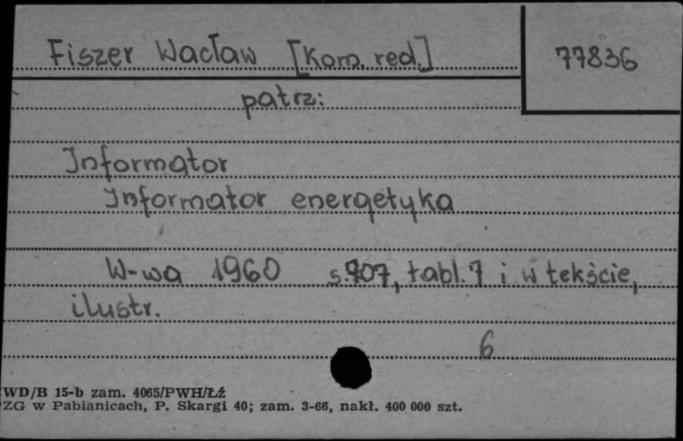 Fiszer Wacław [Kom. red.]
77836
patrz:
Informator
Informator energetyka
W-wa 1960 s. 707, tabl. 7 i w tekście,
ilustr.
6
WD/B 15-b zam. 4065/PWH/Łź
ZG w Pabianicach, P. Skargi 40; zam. 3-66, nakł. 400 000 szt.